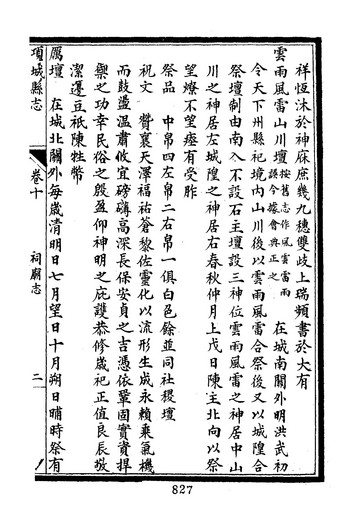 祥恆沐於神庥庶幾九穗雙歧上瑞頻書於大有
雲雨風雷山川壇 按舊志作風雲雷雨誤今據會典正之 在城南關外明洪武初
令天下州縣祀境內山川後以雲雨風雷合祭後又以城隍合
祭壇制由南入不設石主壇設三神位雲雨風雷之神居中山
川之神居左城隍之神居右春秋仲月上戊日陳主北向以祭
望燎不望瘞有受胙
祭品 中帛四左帛二右帛一俱白色餘並同社稷壇
祝文 贊襄天澤福祐蒼黎佐靈化以流形生成永賴乗氣機
而鼓盪溫肅攸宜磅礴高深長保安貞之吉憑依鞏固實資捍
禦之功幸民俗之殷盈仰神明之庇護恭修歲祀正值良辰敬
潔籩豆祇陳牲幣
厲壇 在城北關外每歲清明日七月望日十月朔日晡時祭有
項城縣志
卷十
祠廟志
二
827